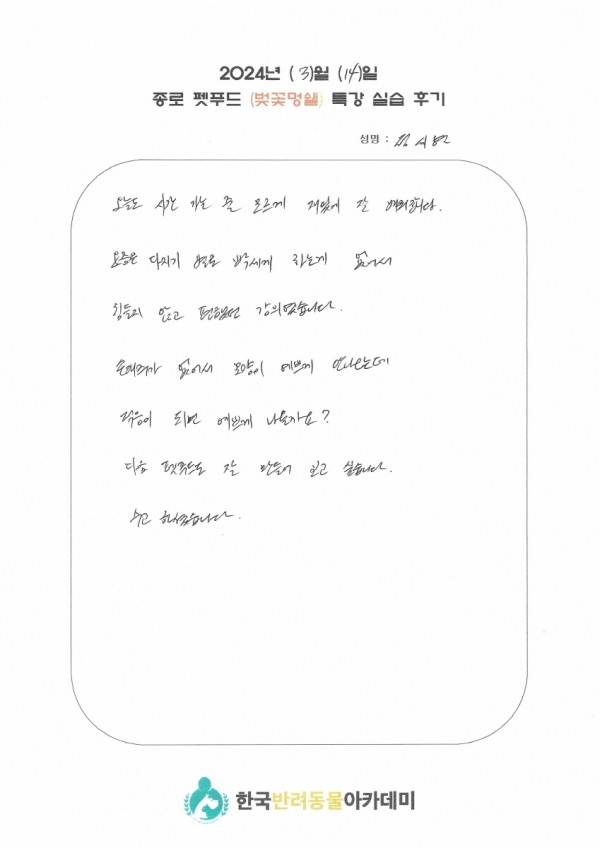 2024년 (3)월 (14)일
종로 펫푸드 (벚꽃명쉘) 특강 실습 후기
성명 :
오늘도 시간 가는 줄 모르게 재밌게 잘
요즘은 다지기 별로 빡세게 하는게 없어서
힘들지 않고 편했던 강의였습니다.
손재주가 없어서 모양이 예쁘게 안나오는데
적응이 되면 예쁘게 나올까요?
다음 펫푸드도 잘 만들어 보고 싶습니다.
수고 하셨습니다.
한국반려동물아카데미